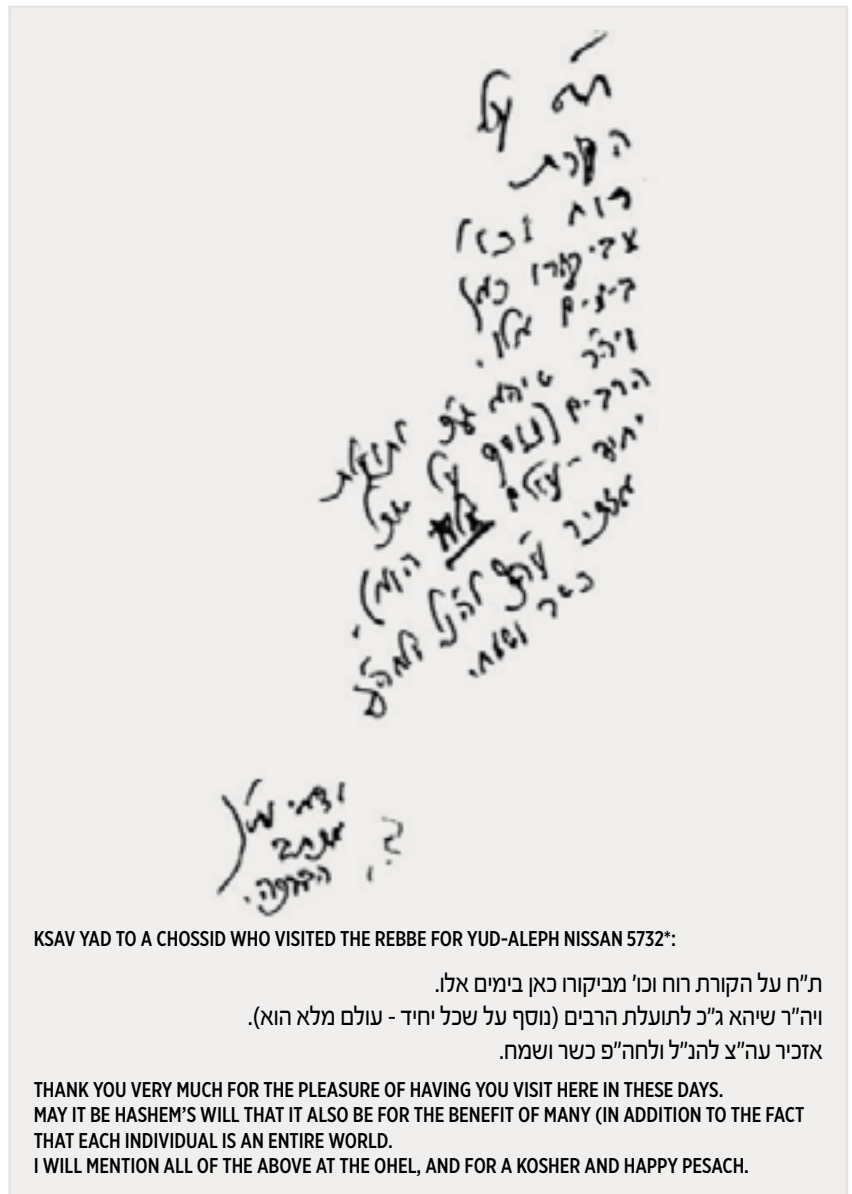 ת"ח על
הקורת
רוח וכו'
מביקורו כאן
בימים אלו.
ויה"ר שיהא ג"כ לתועלת
הרבים (נוסף על שכל
יחיד - עולם מלא הוא).
אזכיר עה"צ להנ"ל ולחה"פ
כשר ושמח.
KSAV YAD TO A CHOSSID WHO VISITED THE REBBE FOR YUD-ALEPH NISSAN 5732*:
ת"ח על הקורת רוח וכו' מביקורו כאן בימים אלו.
ויה"ר שיהא ג"כ לתועלת הרבים (נוסף על שכל יחיד - עולם מלא הוא).
אזכיר עה"צ להנ"ל ולחה"פ כשר ושמח.
THANK YOU VERY MUCH FOR THE PLEASURE OF HAVING YOU VISIT HERE IN THESE DAYS.
MAY IT BE HASHEM'S WILL THAT IT ALSO BE FOR THE BENEFIT OF MANY (IN ADDITION TO THE FACT
THAT EACH INDIVIDUAL IS AN ENTIRE WORLD.
I WILL MENTION ALL OF THE ABOVE AT THE OHEL, AND FOR A KOSHER AND HAPPY PESACH.